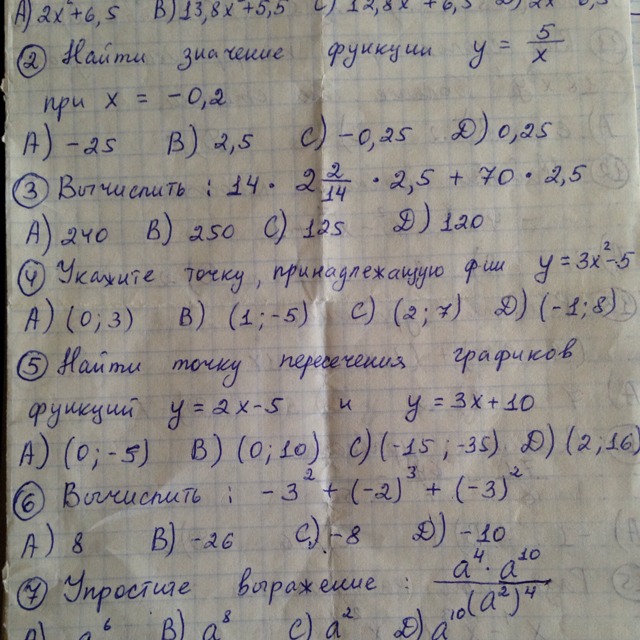 А) 2x²+6,5 В) 13,8x²+5,5 С) 12,8x²+6,5
② Найти значение функции y = 5/x
при x = -0,2
А) -25 В) 2,5 С) -0,25 D) 0,25
③ Вычислить : 14 · 2 2/14 · 2,5 + 70 · 2,5
А) 240 В) 250 С) 125 D) 120
④ Укажите точку, принадлежащую фии y = 3x²-5
А) (0; 3) В) (1; -5) С) (2; 7) D) (-1; 8)
⑤ Найти точку пересечения графиков
функций y = 2x-5 и y = 3x+10
А) (0; -5) В) (0; 10) С) (-15; -35) D) (2; 16)
⑥ Вычислить : -3² + (-2)³ + (-3)²
А) 8 В) -26 С) -8 D) -10
⑦ Упростите выражение : a⁴ · a¹⁰ / (a²)⁴
А) a⁶ В) a⁸ С) a² D) a¹⁰